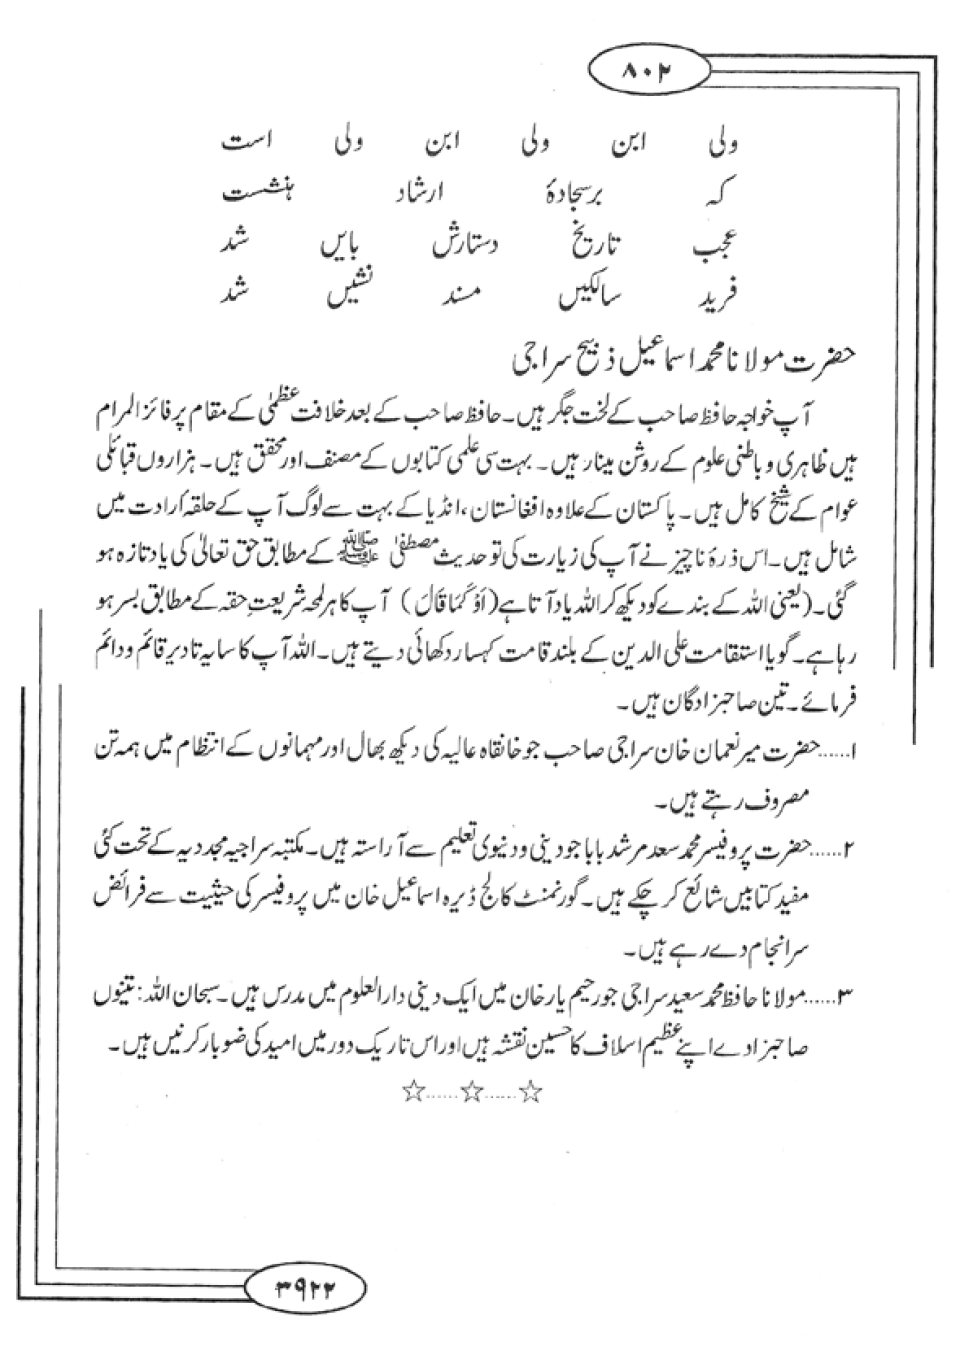 ۸۰۲
ولی ابن ولی ابن ولی است
کہ برسجادۂ ارشاد ہنشست
عجب تاریخ دستارش بایں شد
فرید سالکیں مسند نشیں شد
حضرت مولانا محمد اسماعیل ذبیح سراجی
آپ خواجہ حافظ صاحب کے لخت جگر ہیں۔ حافظ صاحب کے بعد خلافت عظمیٰ کے مقام پر فائز المرام
ہیں ظاہری و باطنی علوم کے روشن مینار ہیں۔ بہت سی علمی کتابوں کے مصنف اور محقق ہیں۔ ہزاروں قبائلی
عوام کے شیخ کامل ہیں۔ پاکستان کے علاوہ افغانستان، انڈیا کے بہت سے لوگ آپ کے حلقہ ارادت میں
شامل ہیں۔ اس ذرۂ ناچیز نے آپ کی زیارت کی تو حدیث مصطفیٰ ﷺ کے مطابق حق تعالیٰ کی یاد تازہ ہو
گئی۔ (یعنی اللہ کے بندے کو دیکھ کر اللہ یاد آتا ہے (اَوْ کَمَا قَالَ) آپ کا ہر لمحہ شریعتِ حقہ کے مطابق بسر ہو
رہا ہے۔ گویا استقامت علی الدین کے بلند قامت کہسار دکھائی دیتے ہیں۔ اللہ آپ کا سایہ تا دیر قائم و دائم
فرمائے۔ تین صاحبزادگان ہیں۔
۱......حضرت میر نعمان خان سراجی صاحب جو خانقاہ عالیہ کی دیکھ بھال اور مہمانوں کے انتظام میں ہمہ تن
مصروف رہتے ہیں۔
۲......حضرت پروفیسر محمد سعد مرشد بابا جو دینی و دنیوی تعلیم سے آراستہ ہیں۔ مکتبہ سراجیہ مجددیہ کے تحت کئی
مفید کتابیں شائع کر چکے ہیں۔ گورنمنٹ کالج ڈیرہ اسماعیل خان میں پروفیسر کی حیثیت سے فرائض
سرانجام دے رہے ہیں۔
۳......مولانا حافظ محمد سعید سراجی جو رحیم یار خان میں ایک دینی دارالعلوم میں مدرس ہیں۔ سبحان اللہ: تینوں
صاحبزادے اپنے عظیم اسلاف کا حسین نقشہ ہیں اور اس تاریک دور میں امید کی ضوبار کرنیں ہیں۔
☆......☆......☆
۳۹۲۲